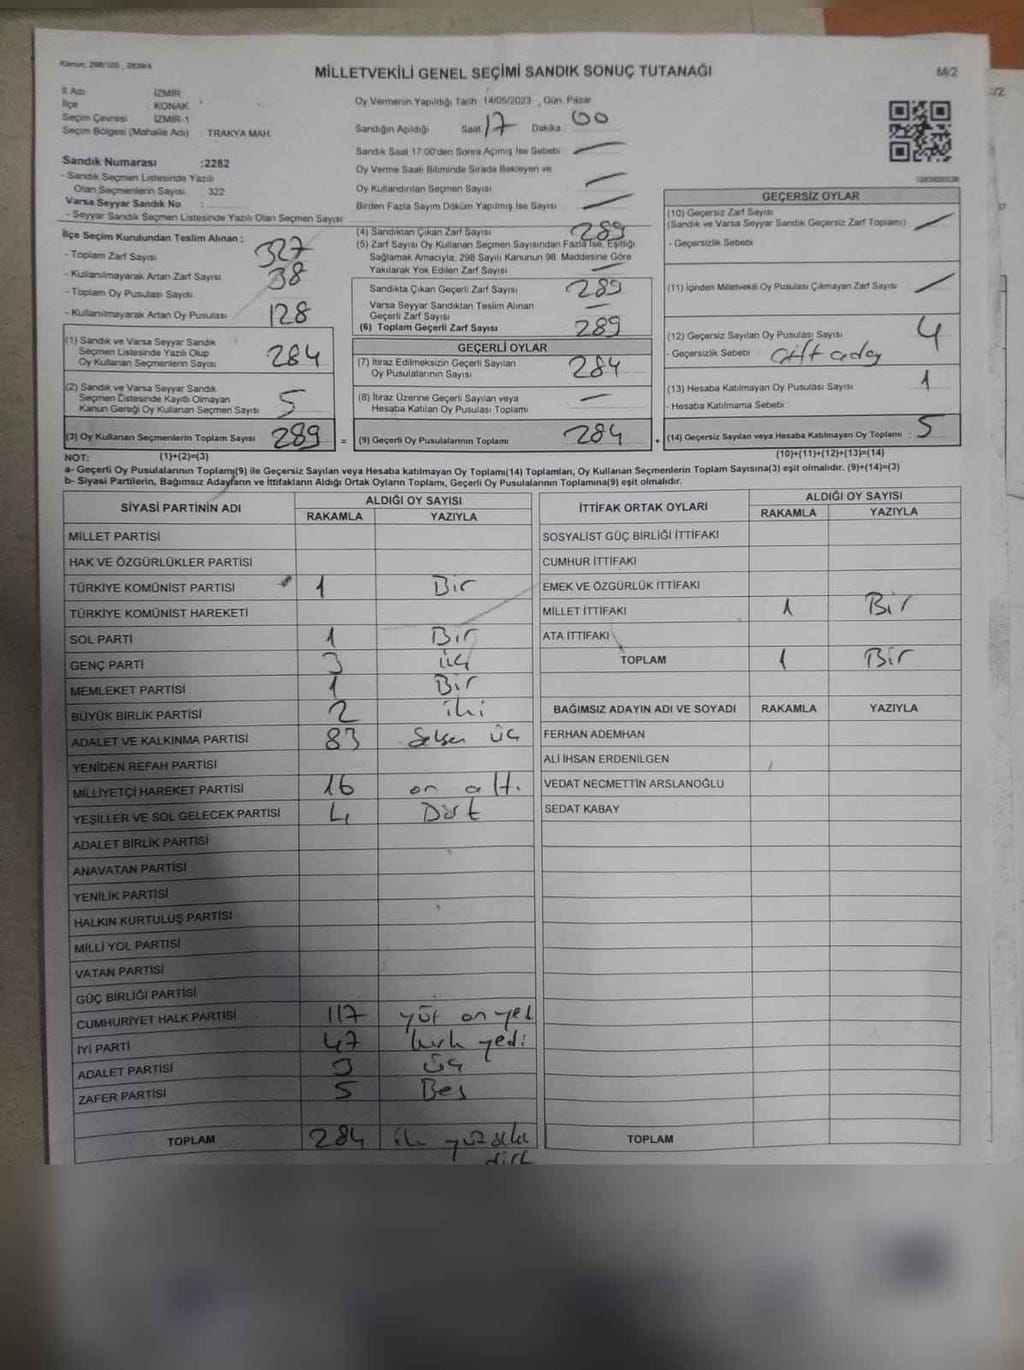 Kanun: 298/105 , 2839/4
MİLLETVEKİLİ GENEL SEÇİMİ SANDIK SONUÇ TUTANAĞI
M/2
İl Adı : İZMİR
İlçe : KONAK
Seçim Çevresi : İZMİR-1
Seçim Bölgesi (Mahalle Adı) : TRAKYA MAH.
Sandık Numarası :2282
- Sandık Seçmen Listesinde Yazılı
Olan Seçmenlerin Sayısı : 322
Varsa Seyyar Sandık No :
- Seyyar Sandık Seçmen Listesinde Yazılı Olan Seçmen Sayısı:
Oy Vermenin Yapıldığı Tarih: 14/05/2023 , Gün: Pazar
Sandığın Açıldığı Saat: 17 Dakika: 00
Sandık Saat 17:00'den Sonra Açılmış İse Sebebi: —
Oy Verme Saati Bitiminde Sırada Bekleyen ve
Oy Kullandırılan Seçmen Sayısı —
Birden Fazla Sayım Döküm Yapılmış İse Sayısı : —
İlçe Seçim Kurulundan Teslim Alınan :
- Toplam Zarf Sayısı 327
- Kullanılmayarak Artan Zarf Sayısı : 38
- Toplam Oy Pusulası Sayısı
- Kullanılmayarak Artan Oy Pusulası : 128
(1) Sandık ve Varsa Seyyar Sandık
Seçmen Listesinde Yazılı Olup
Oy Kullanan Seçmenlerin Sayısı : 284
(2) Sandık ve Varsa Seyyar Sandık
Seçmen Listesinde Kayıtlı Olmayan
Kanun Gereği Oy Kullanan Seçmen Sayısı : 5
(3) Oy Kullanan Seçmenlerin Toplam Sayısı : 289 =
(4) Sandıktan Çıkan Zarf Sayısı 289
(5) Zarf Sayısı Oy Kullanan Seçmen Sayısından Fazla İse, Eşitliği
Sağlamak Amacıyla, 298 Sayılı Kanunun 98. Maddesine Göre
Yakılarak Yok Edilen Zarf Sayısı —
Sandıkta Çıkan Geçerli Zarf Sayısı 289
Varsa Seyyar Sandıktan Teslim Alınan
Geçerli Zarf Sayısı —
(6) Toplam Geçerli Zarf Sayısı 289
GEÇERLİ OYLAR
(7) İtiraz Edilmeksizin Geçerli Sayılan
Oy Pusulalarının Sayısı 284
(8) İtiraz Üzerine Geçerli Sayılan veya
Hesaba Katılan Oy Pusulası Toplamı —
(9) Geçerli Oy Pusulalarının Toplamı 284
GEÇERSİZ OYLAR
(10) Geçersiz Zarf Sayısı
(Sandık ve Varsa Seyyar Sandık Geçersiz Zarf Toplamı) : —
- Geçersizlik Sebebi :
(11) İçinden Milletvekili Oy Pusulası Çıkmayan Zarf Sayısı : —
(12) Geçersiz Sayılan Oy Pusulası Sayısı : 4
- Geçersizlik Sebebi : çift aday
(13) Hesaba Katılmayan Oy Pusulası Sayısı : 1
- Hesaba Katılmama Sebebi :
(14) Geçersiz Sayılan veya Hesaba Katılmayan Oy Toplamı : 5
NOT: (1)+(2)=(3)
(10)+(11)+(12)+(13)=(14)
a- Geçerli Oy Pusulalarının Toplamı(9) ile Geçersiz Sayılan veya Hesaba katılmayan Oy Toplamı(14) Toplamları, Oy Kullanan Seçmenlerin Toplam Sayısına(3) eşit olmalıdır. (9)+(14)=(3)
b- Siyasi Partilerin, Bağımsız Adayların ve İttifakların Aldığı Ortak Oyların Toplamı, Geçerli Oy Pusulalarının Toplamına(9) eşit olmalıdır.
SİYASİ PARTİNİN ADI
ALDIĞI OY SAYISI
RAKAMLA YAZIYLA
MİLLET PARTİSİ
HAK VE ÖZGÜRLÜKLER PARTİSİ
TÜRKİYE KOMÜNİST PARTİSİ 1 Bir
TÜRKİYE KOMÜNİST HAREKETİ
SOL PARTİ 1 Bir
GENÇ PARTİ 3 üç
MEMLEKET PARTİSİ 1 Bir
BÜYÜK BİRLİK PARTİSİ 2 iki
ADALET VE KALKINMA PARTİSİ 83 Seksen üç
YENİDEN REFAH PARTİSİ
MİLLİYETÇİ HAREKET PARTİSİ 16 on altı
YEŞİLLER VE SOL GELECEK PARTİSİ 4 Dört
ADALET BİRLİK PARTİSİ
ANAVATAN PARTİSİ
YENİLİK PARTİSİ
HALKIN KURTULUŞ PARTİSİ
MİLLİ YOL PARTİSİ
VATAN PARTİSİ
GÜÇ BİRLİĞİ PARTİSİ
CUMHURİYET HALK PARTİSİ 117 yüz on yedi
İYİ PARTİ 47 kırk yedi
ADALET PARTİSİ 3 üç
ZAFER PARTİSİ 5 Beş
TOPLAM 284 iki yüz seksen
dört
İTTİFAK ORTAK OYLARI
ALDIĞI OY SAYISI
RAKAMLA YAZIYLA
SOSYALİST GÜÇ BİRLİĞİ İTTİFAKI
CUMHUR İTTİFAKI
EMEK VE ÖZGÜRLÜK İTTİFAKI
MİLLET İTTİFAKI 1 Bir
ATA İTTİFAKI
TOPLAM 1 Bir
BAĞIMSIZ ADAYIN ADI VE SOYADI RAKAMLA YAZIYLA
FERHAN ADEMHAN
ALİ İHSAN ERDENİLGEN
VEDAT NECMETTİN ARSLANOĞLU
SEDAT KABAY
TOPLAM